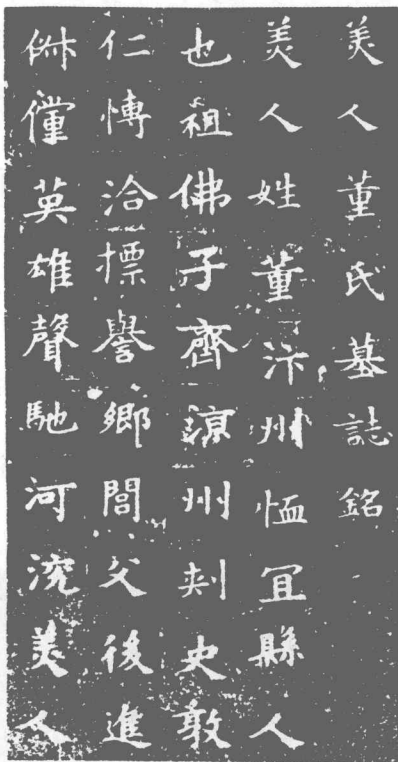 美人董氏墓誌銘
美人姓董汴州恤冝縣人
也祖佛子齊涼州刾史敦
仁愽洽摽譽鄉閭父後進
俶儻英雄聲馳河兗美人